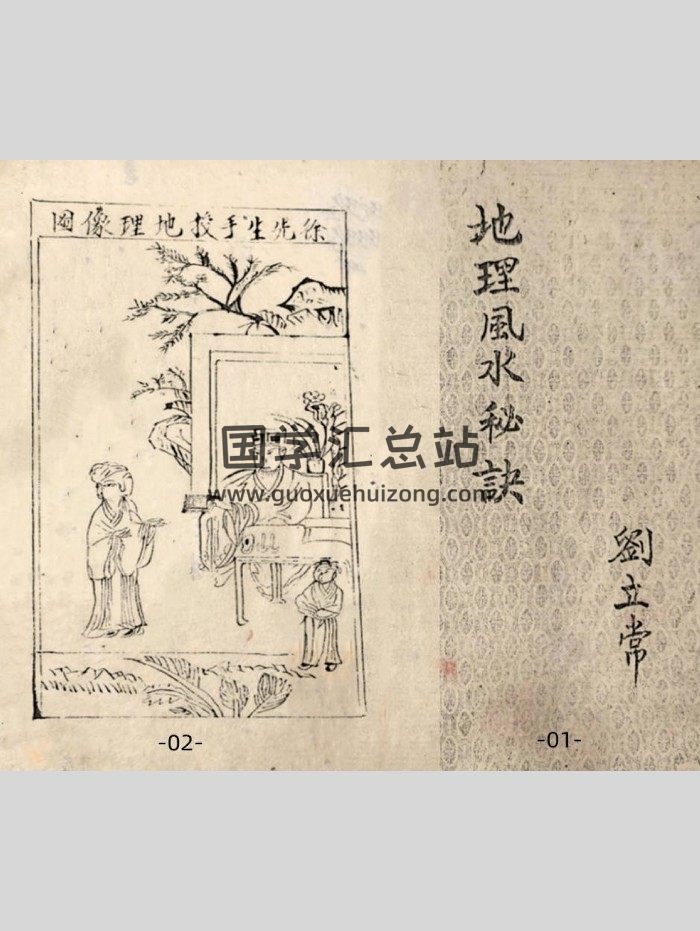 地理風水秘訣
劉立常
-01-
徐先生手授地理像圖
国学汇总站
www.guoxuehuizong.com
-02-